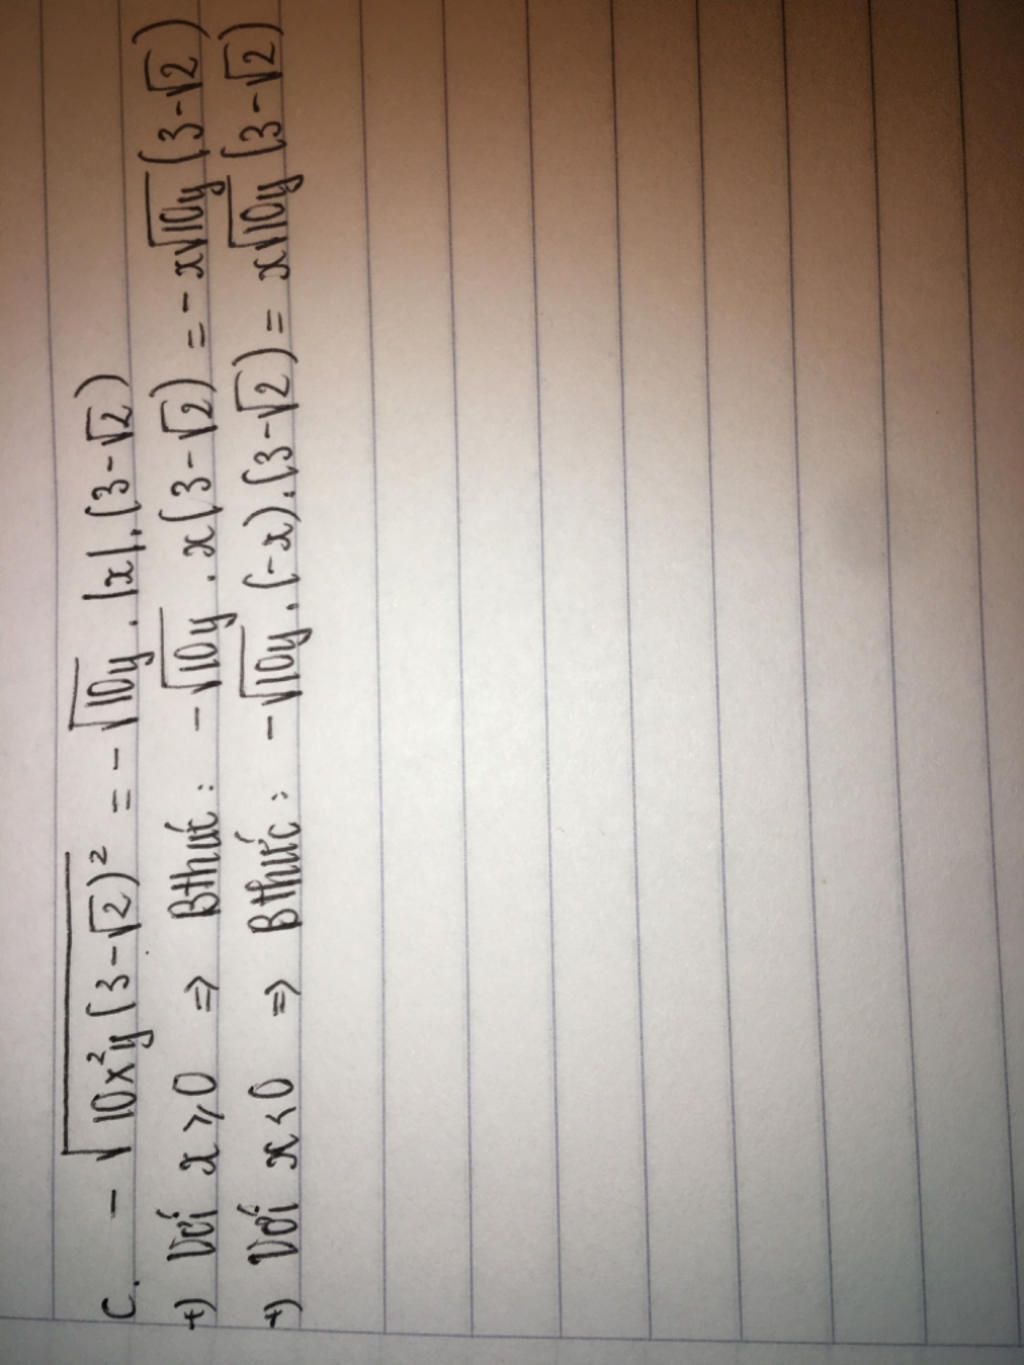 c. - √(10x²y(3-√2)²) = - √(10y) . |x| . (3-√2)
+) Với x ⩾ 0 ⇒ Bthức : - √(10y) . x(3-√2) = - x√(10y) (3-√2)
+) Với x < 0 ⇒ Bthức : - √(10y) . (-x) . (3-√2) = x√(10y) (3-√2)